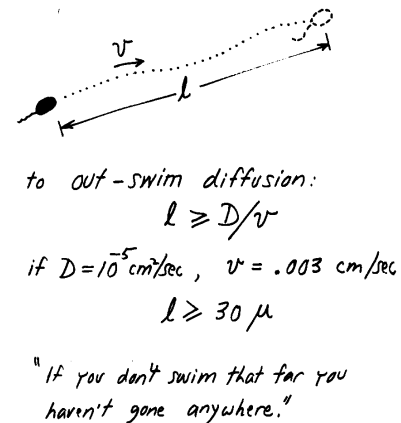 v
l
to out-swim diffusion:
l ⩾ D/v
if D = 10⁻⁵ cm²/sec, v = .003 cm/sec
l ⩾ 30 μ
"If you don't swim that far you
haven't gone anywhere."